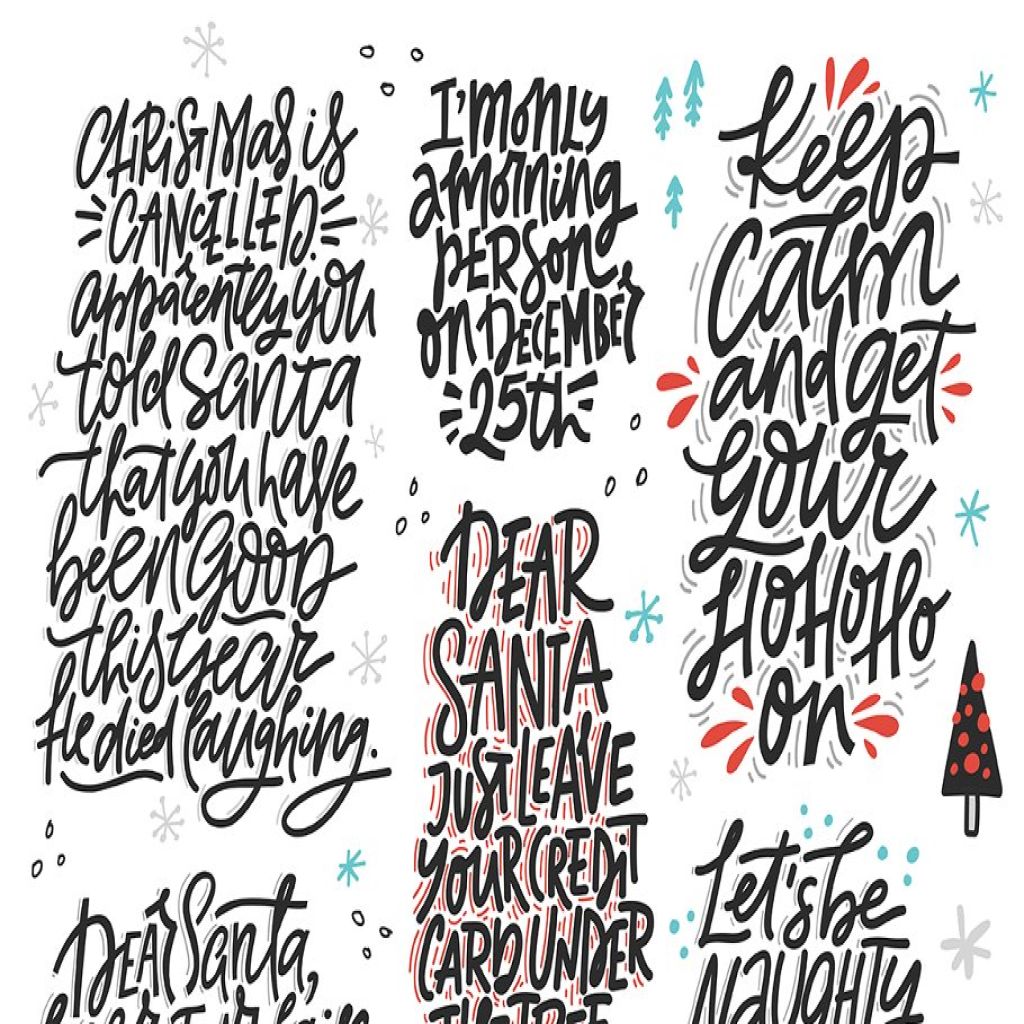 CHRiSTMas is
CANCELLED
apparently you
told Santa
that you have
been GOOD
this year
He died laughing.
DEAR Santa,
I'm ONLY
a morning
PERSON
on DECEMBER
25th
DEAR
SANTA
JUST LEAVE
YOUR CREDiT
CARD UNDER
THE TREE
Keep
calm
and get
your
HoHoHo
on
Let's be
NAUGHTY